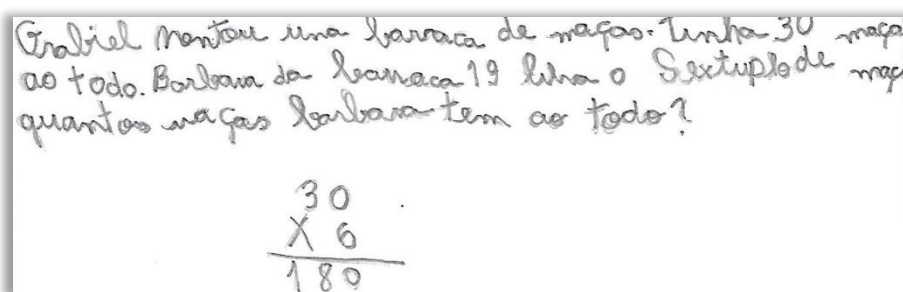 Grabiel montou una barraca de maças. Tinha 30 maça
ao todo. Barbara da barraca 19 tinha o Sextuplo de maç
quantas maças barbara tem ao todo?
30
X 6
180